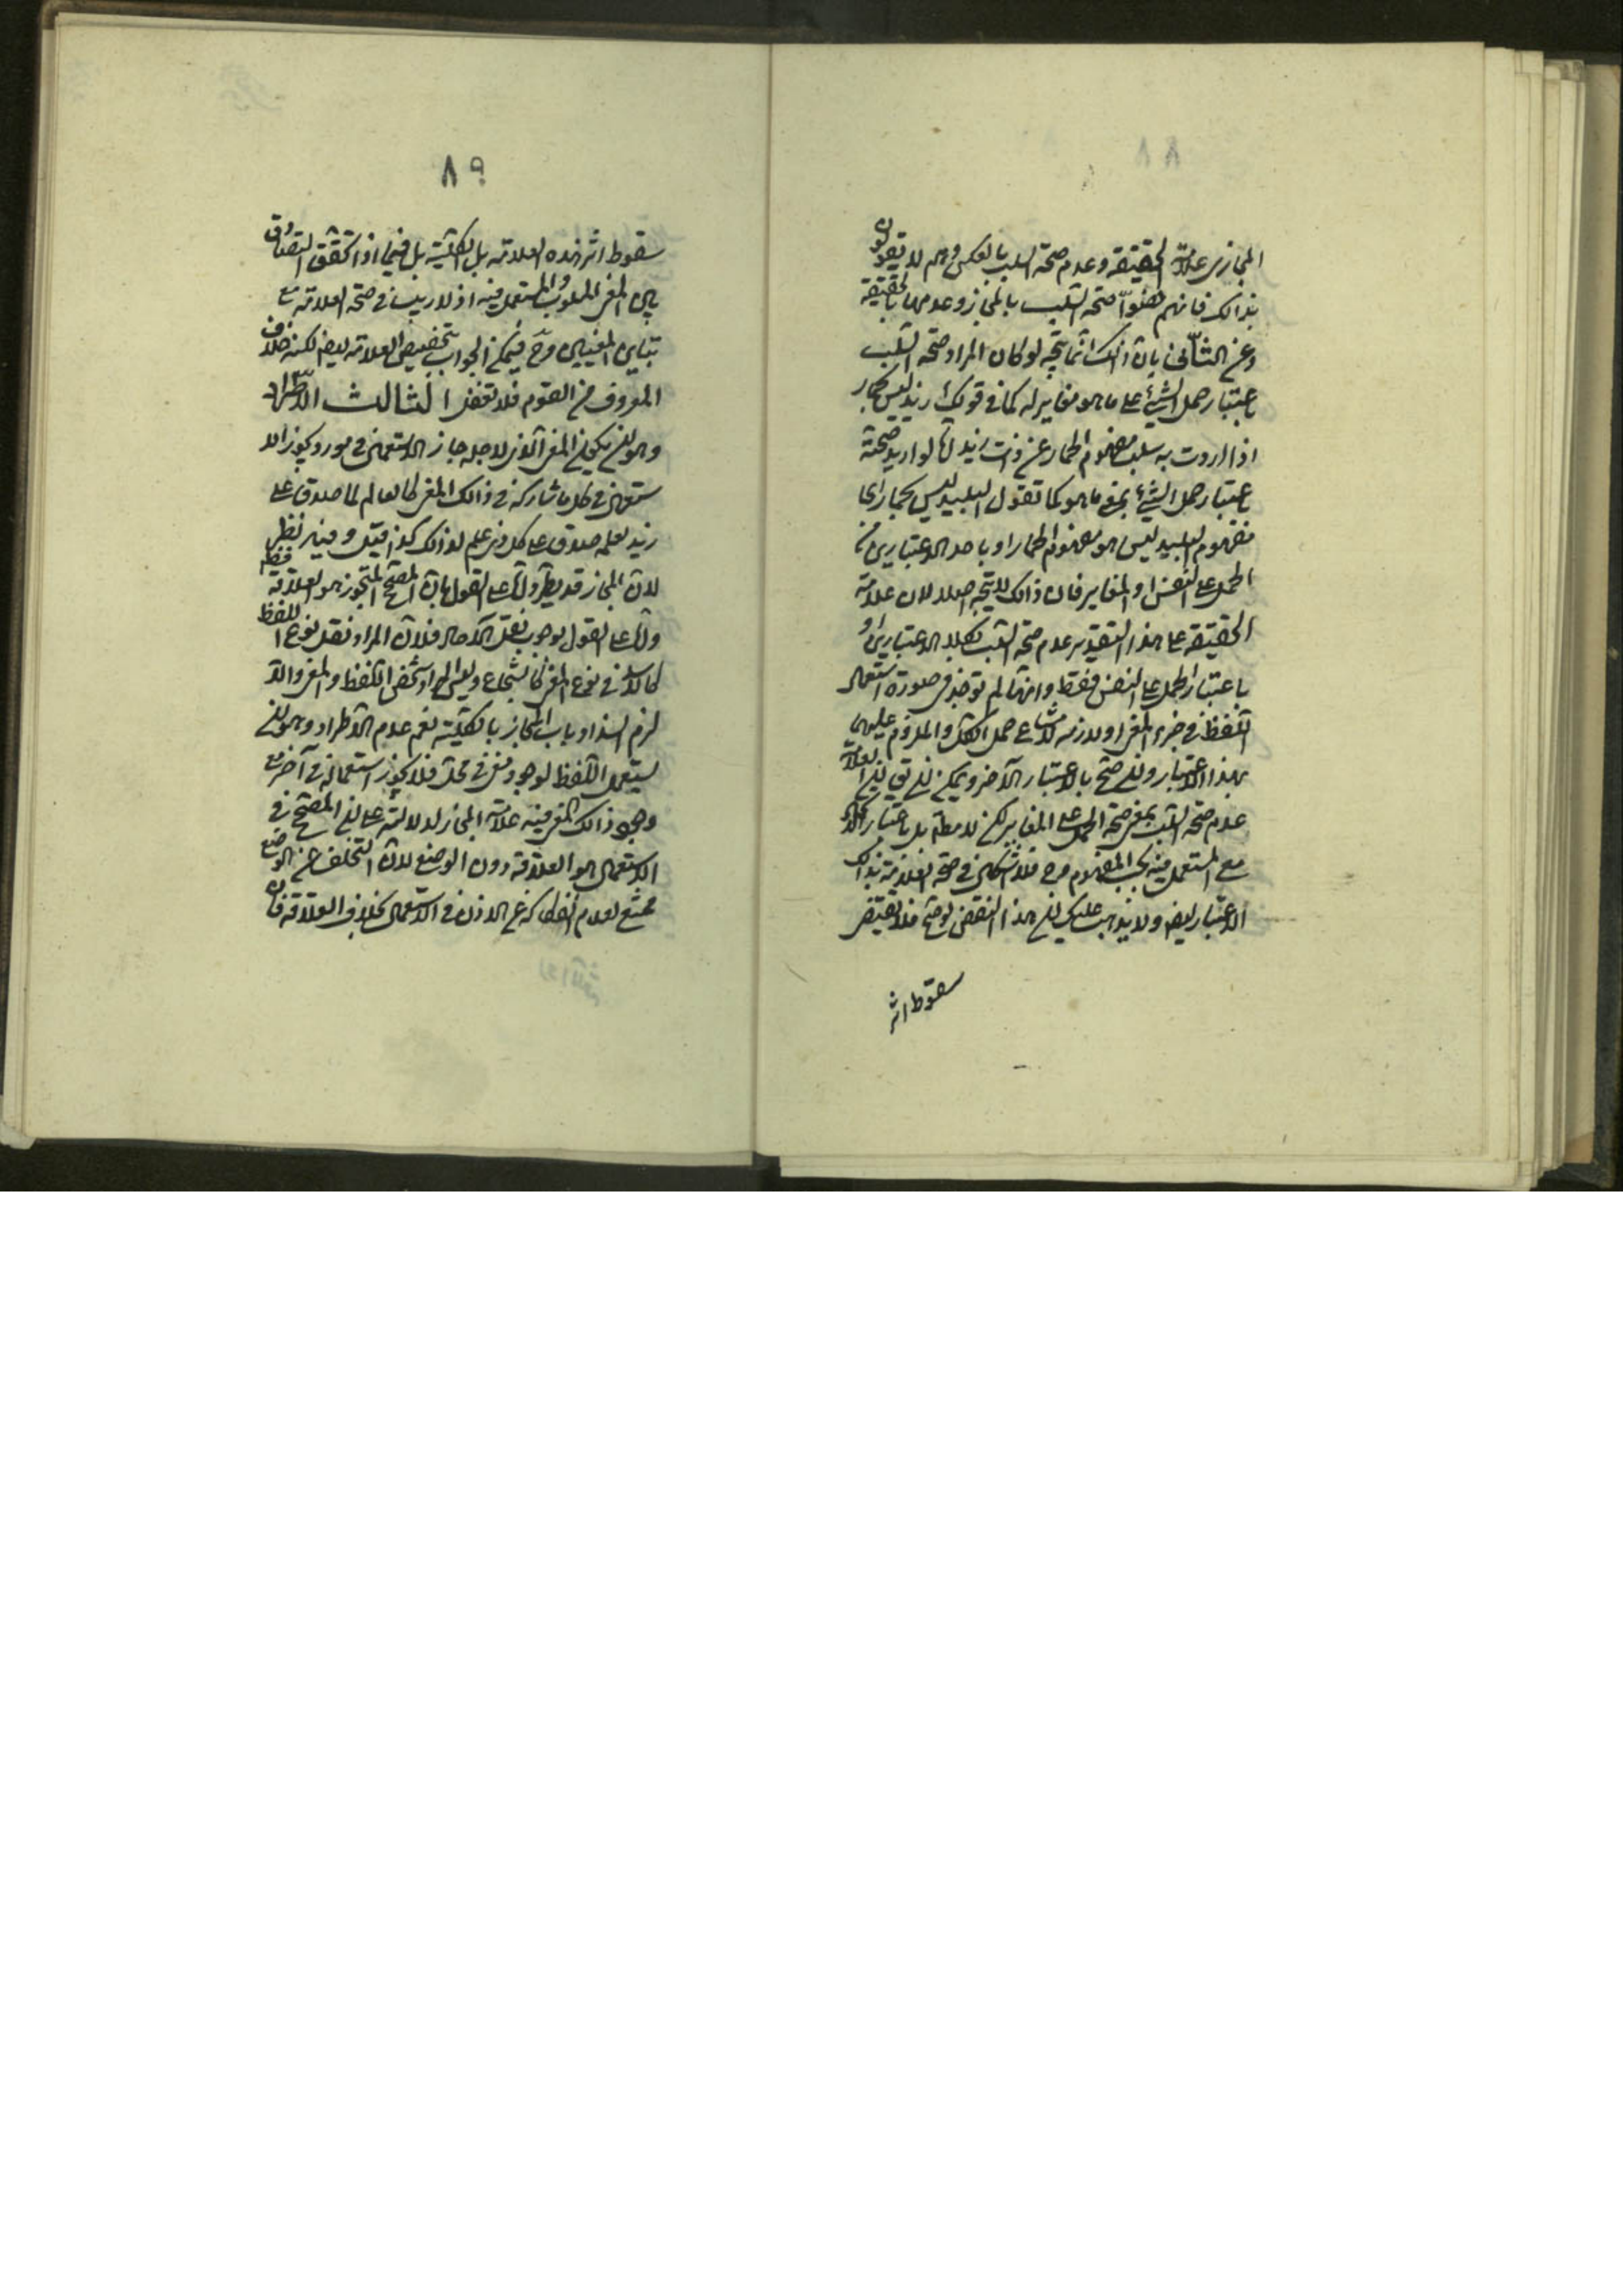 ٨٨
المجازى علامة الحقيقة وعدم صحة السلب بالعكس وهم لا يقولون
بذالك فانهم خصّوا صحة السلب بالمجاز وعدمها بالحقيقة
وعن الثّانى بان ذالك انّما يتّجه لو كان المراد صحة السّلب
باعتبار حمل الشئ على ما هو مغاير له كما فى قولك زيد ليس بحمار
اذا اردت به سلب مفهوم الحمار عن ذات زيد امّا لو اريد صحّته
باعتبار حمل الشئ بمعنى ما هو كما تقول البليد ليس بحمار اى
مفهوم البليد ليس هو مفهوم الحمار او باحد الاعتبارين من
الحمل على النفس او المغاير فان ذالك لا يتّجه اصلا لان علامة
الحقيقة على هذا التقدير عدم صحّة السّلب بكلا الاعتبارين او
باعتبار الحمل على النفس فقط وانّها لم توجد فى صورة استعمال
اللّفظ فى جزء المعنى او لازمه لامتناع حمل الكلّ والملزوم عليهما
بهذا الاعتبار وان صحّ بالاعتبار الآخر ويمكن ان يق ان العلامة
عدم صحّة السّلب بمعنى صحّة الحمل على المغاير لكن لا مطلقا بل باعتبار
مع المستعمل فيه بحسب المفهوم وح فلا اشكال فى صحّة العلامة بذالك
الاعتبار ايضا ولا يذهب عليك ان هذا النقض لو صحّ فلا يقتضى
سقوط اثر
٨٩
سقوط اثر هذه العلامة بل الكليّة بل فيما اذا تحقّق التصادق
بين المعنى المسلوب والمستعمل فيه اذ لا ريب فى صحّة العلامة مع
تباين المعنيين وح فيمكن الجواب بتخصيص العلامة ايضا لكنه خلاف
المعروف من القوم فلا تغفل الثالث الاطّراد
وهو ان يكون المعنى الّذى لاجله جاز الاستعمال فى مورد يجوز الا
ستعمال فى كل ما شاركه فى ذالك المعنى كالعالم لما صدق على
زيد لعلمه صدق على كل ذى علم لذالك كذا قيل وفيه نظر
لان المجاز قد يطّرد امّا على القول بان المصحّح للتجوز هو العلاقة فقط
وامّا على القول بوجوب نقل الآحاد فلان المراد نقل نوع اللفظ
كالاسد فى نوع المعنى كالشجاع وليس المراد شخصى اللّفظ والمعنى والّا
لزم انسداد باب المجاز بالكليّة نعم عدم الاطّراد وهو ان
يستعمل اللّفظ لوجود معنى فى محلّ فلا يجوز استعماله فى آخر مع
وجود ذالك المعنى فيه علامة المجاز لدلالته على ان المصحّح فى
الاستعمال هو العلاقة دون الوضع لان التخلّف عن الوضع
ممتنع لعدم انفكاكه عن الاذن فى الاستعمال بخلاف العلاقة فان